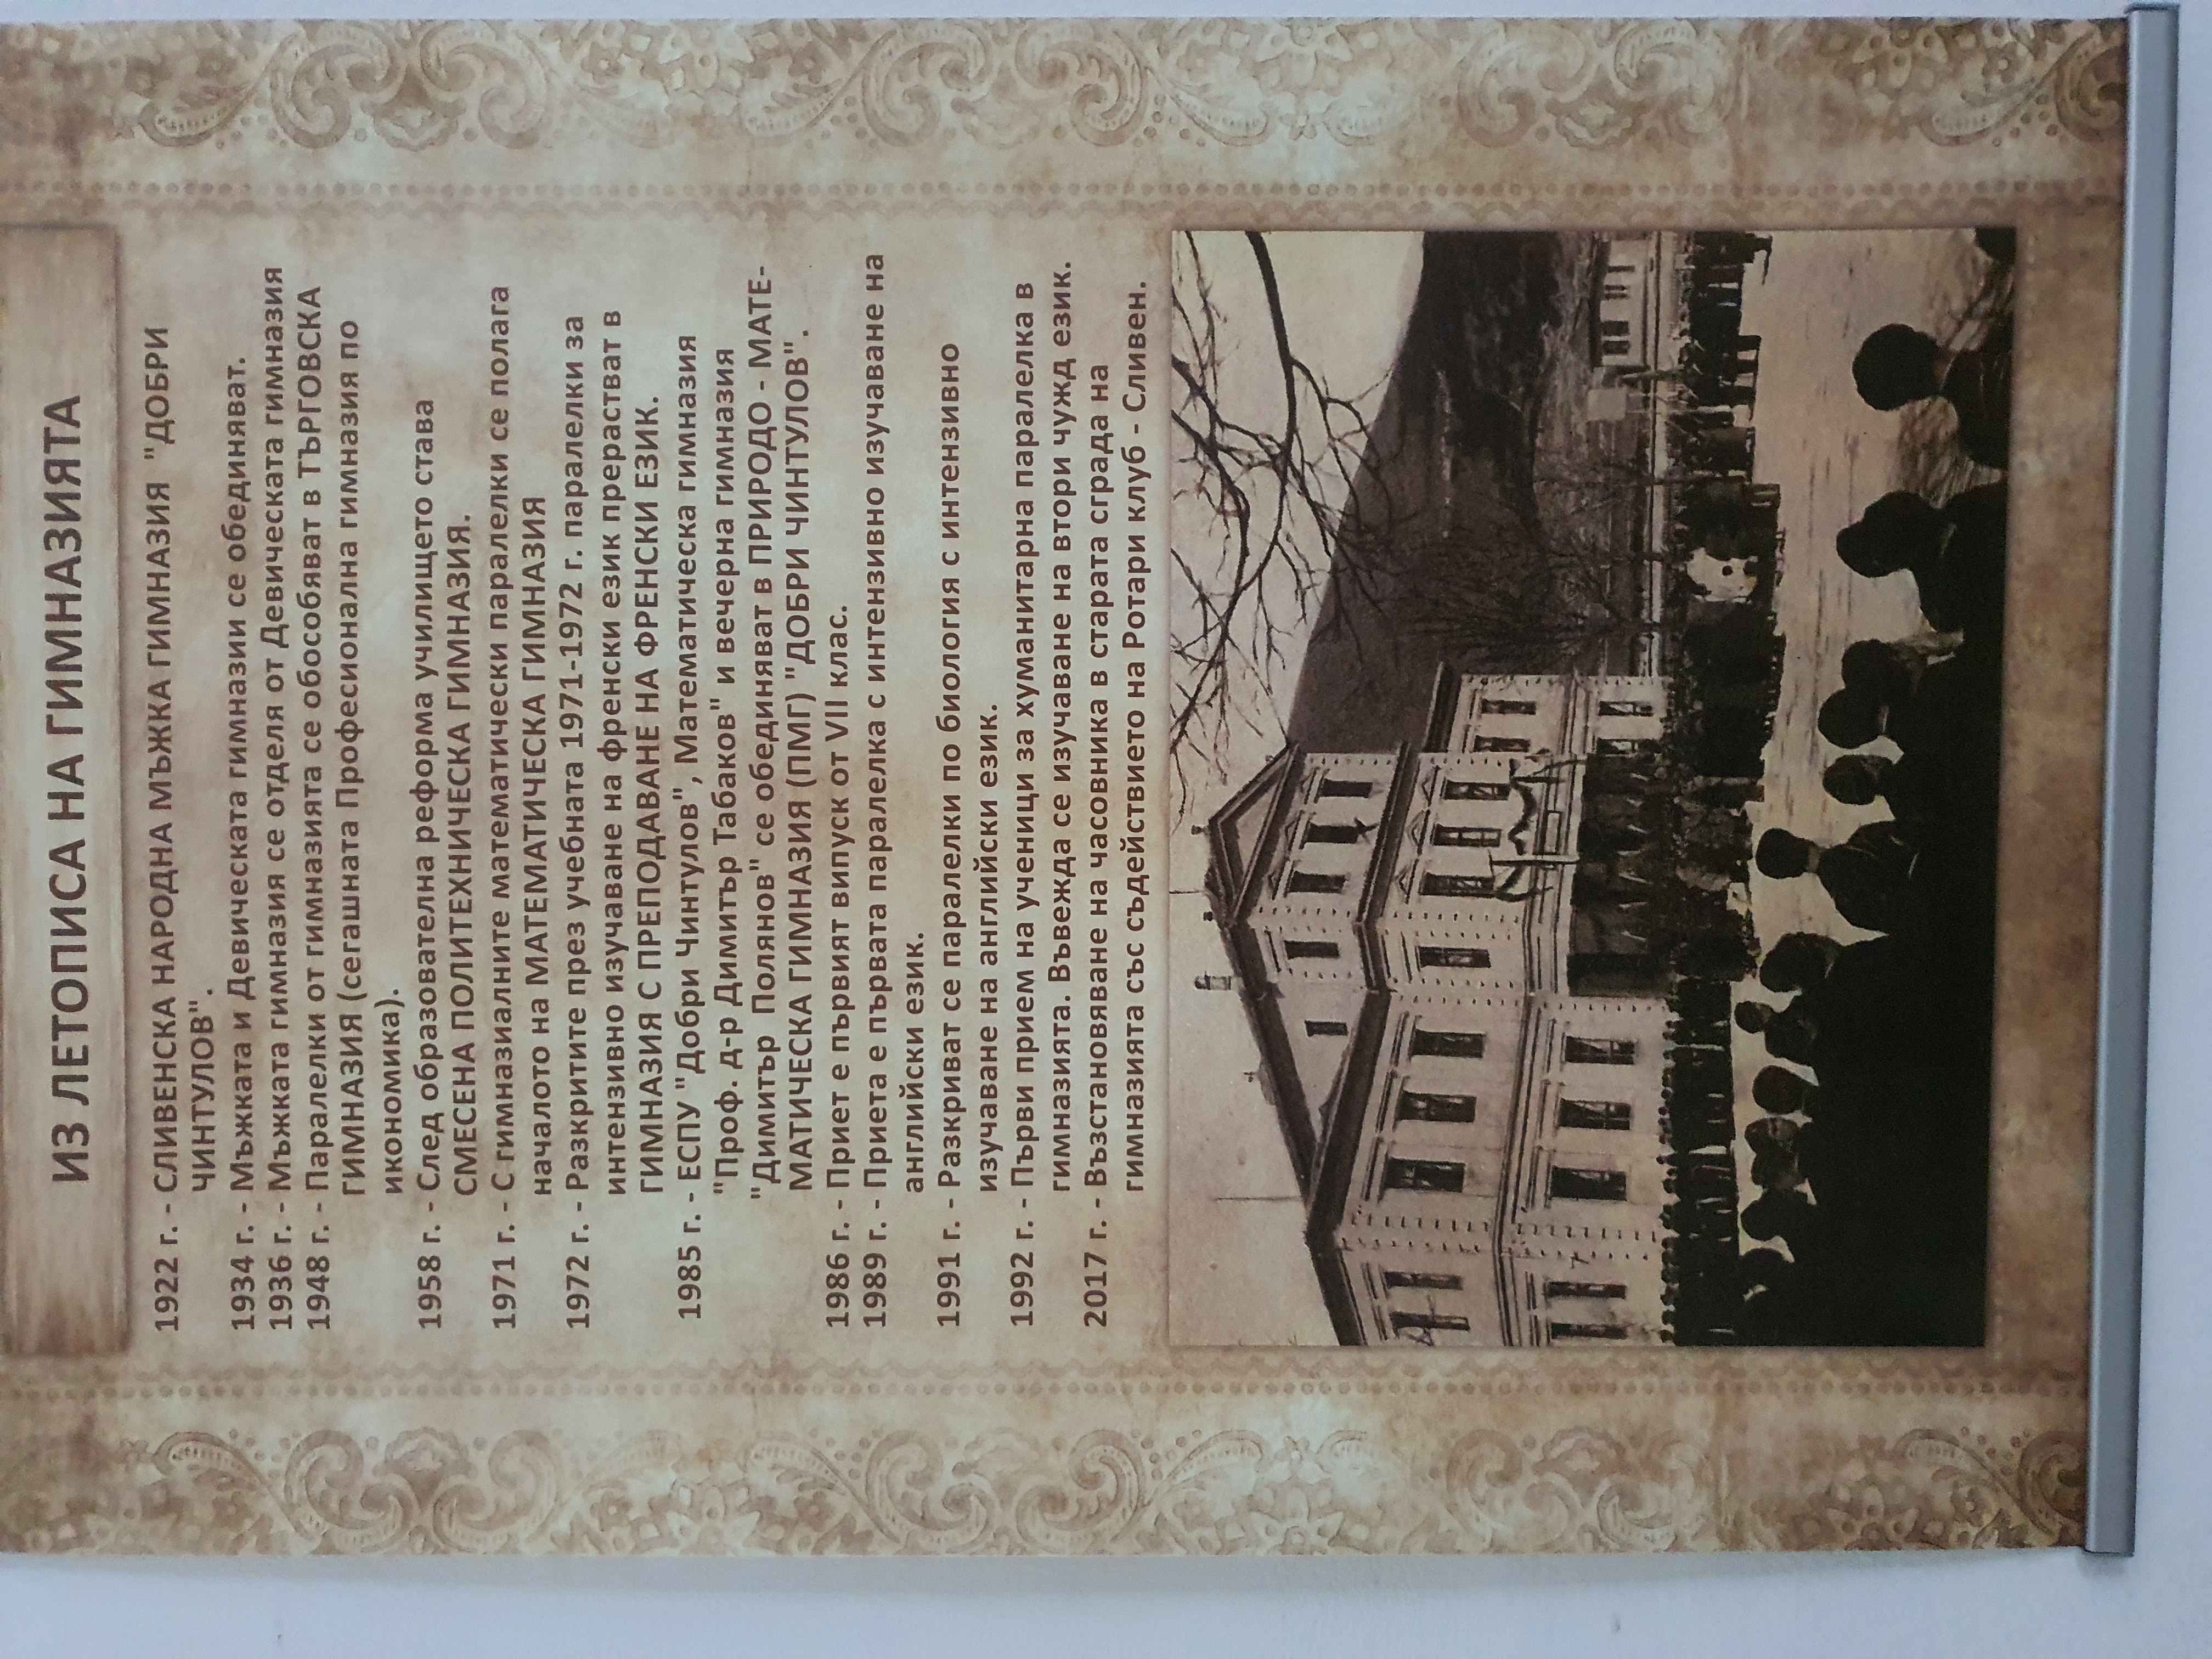 ИЗ ЛЕТОПИСА НА ГИМНАЗИЯТА
1922 г. - СЛИВЕНСКА НАРОДНА МЪЖКА ГИМНАЗИЯ "ДОБРИ
ЧИНТУЛОВ".
1934 г. - Мъжката и Девическата гимназии се обединяват.
1936 г. - Мъжката гимназия се отделя от Девическата гимназия
1948 г. - Паралелки от гимназията се обособяват в ТЪРГОВСКА
ГИМНАЗИЯ (сегашната Професионална гимназия по
икономика).
1958 г. - След образователна реформа училището става
СМЕСЕНА ПОЛИТЕХНИЧЕСКА ГИМНАЗИЯ.
1971 г. - С гимназиалните математически паралелки се полага
началото на МАТЕМАТИЧЕСКА ГИМНАЗИЯ
1972 г. - Разкритите през учебната 1971-1972 г. паралелки за
интензивно изучаване на френски език прерастват в
ГИМНАЗИЯ С ПРЕПОДАВАНЕ НА ФРЕНСКИ ЕЗИК.
1985 г. - ЕСПУ "Добри Чинтулов", Математическа гимназия
"Проф. д-р Димитър Табаков" и вечерна гимназия
"Димитър Полянов" се обединяват в ПРИРОДО - МАТЕ-
МАТИЧЕСКА ГИМНАЗИЯ (ПМГ) "ДОБРИ ЧИНТУЛОВ".
1986 г. - Приет е първият випуск от VII клас.
1989 г. - Приета е първата паралелка с интензивно изучаване на
английски език.
1991 г. - Разкриват се паралелки по биология с интензивно
изучаване на английски език.
1992 г. - Първи прием на ученици за хуманитарна паралелка в
гимназията. Въвежда се изучаване на втори чужд език.
2017 г. - Възстановяване на часовника в старата сграда на
гимназията със съдействието на Ротари клуб - Сливен.